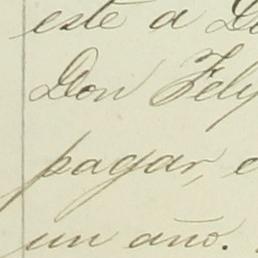 este a D
Don Fely
pagar, e
un año.